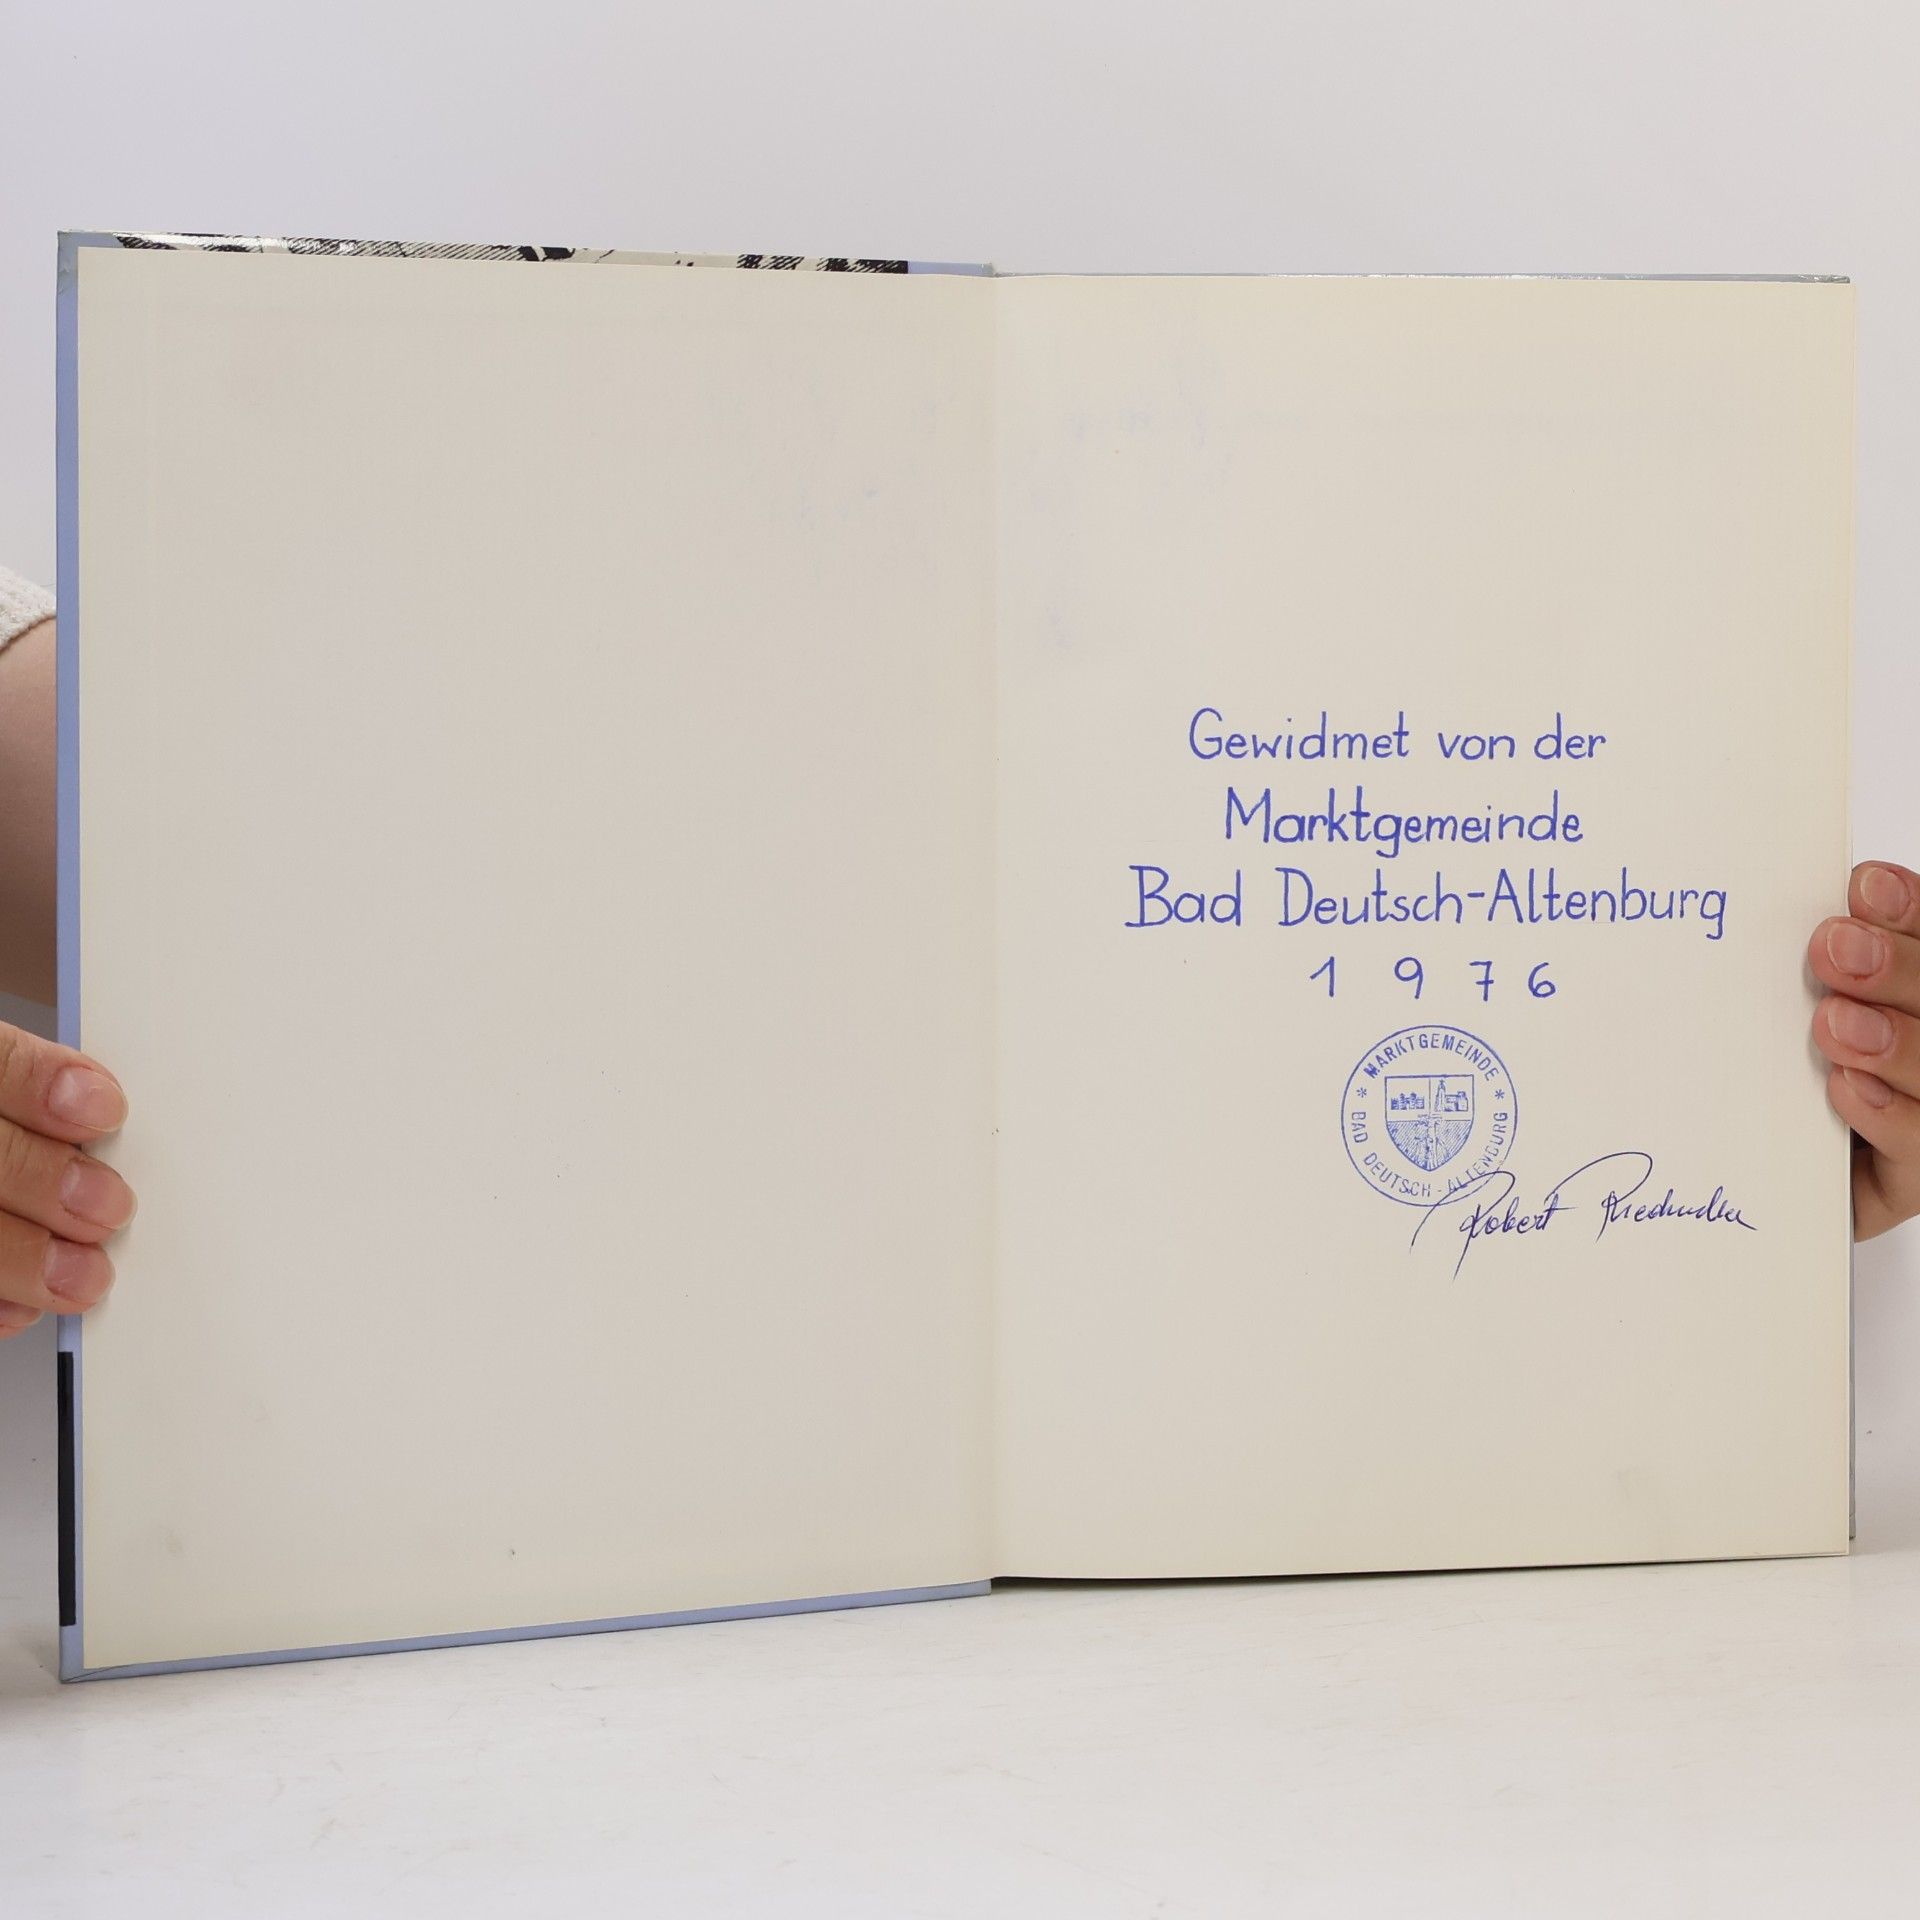 Gewidmet von der
Marktgemeinde
Bad Deutsch-Altenburg
1976
* MARKTGEMEINDE *
BAD DEUTSCH-ALTENBURG
Robert